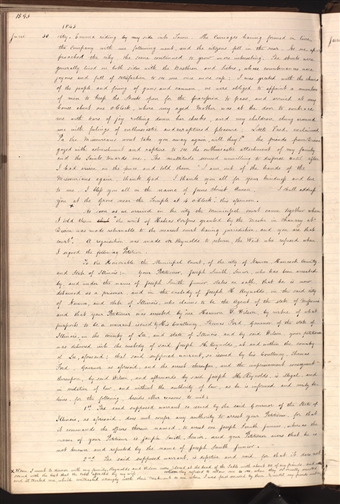 1843.
1843.
June 30 my, Emma riding by my side into Town. The Carriages having formed in line,
the company with me following next, and the citizens fell in the rear. As we ap-
proached the city, the scene continued to grow more interesting. The streets were
generally lined on both sides with the Brethren and Sisters, whose countenances were
joyous and full of satisfaction to see me once more safe. I was greeted with the cheers
of the people and firing of guns and cannon. we were obliged to appoint a number
of men to keep the streets open for the procession to pass, and arrived at my
house about one o'clock, where my aged Mother was at the door to embrace
me with tears of joy rolling down her cheeks, and my children clung around
me with feelings of enthusiastic and enraptured pleasure. Little Fred. exclaimed
"Pa the Missourians won't take you away again, will they?" The friends from
gazed with astonishment and rapture to see the enthusiastic attachment of my family
and the Saints towards me. The multitude seemed unwilling to disperse until after
I had arisen on the fence and told them "I am out of the hands of the
Missourians again, thank God. I thank you all for your kindness and love
to me. I bless you all in the name of Jesus Christ, Amen. I shall address
you at the Grove near the Temple at 4 o'clock this afternoon.
As soon as we arrived in the city the municipal court came together when
I told them the writ of Habeas Corpus granted by the Master in Chancery at
was made returnable to the nearest court having jurisdiction, and you are that
court. A requisition was made on Reynolds to return the Writ who refused when
I signed the following Petition.
To the Honorable the Municipal Court, of the city of Nauvoo, Hancock County
and State of Illinois: Your Petitioner, Joseph Smith Senior, who has been arrested
by, and under the name of Joseph Smith junior, states on oath, that he is now
detained as a prisoner, and in the custody of Joseph H. Reynolds, in the said city
of Nauvoo, and State of Illinois, who claims to be the Agent of the State of Missouri
and that your Petitioner was arrested by one Harmon T. Wilson, by virtue of what
purports to be a warrant issued by His Excellency, Thomas Ford, Governor of the State of
Illinois, in the county of Lee, and State of Illinois and by said Wilson, your Petitioner
was delivered into the custody of said Joseph H. Reynolds, at and within the county
of Lee, aforesaid; that said supposed warrant, so issued by his Excellency, Thomas
Ford, Governor as aforesaid, and the arrest thereupon, and the imprisonment consequent
thereupon, by said Wilson, and afterwards by said Joseph H. Reynolds, is illegal, and
in violation of law, and without the authority of law, as he is informed and verily be-
lieves, for the following, besides other reasons to wit;
1st. The said supposed warrant so issued by the said Governor of the State of
Illinois, as aforesaid, does not confer any authority to arrest your Petitioner, for that
it commands the officers therein named, to arrest one Joseph Smith junior, whereas the
name of your Petitioner is Joseph Smith, Senior, and your Petitioner avers that he is
not known and reputed by the name of Joseph Smith junior.
2nd. The said supposed warrant is defective and void, for that it does not